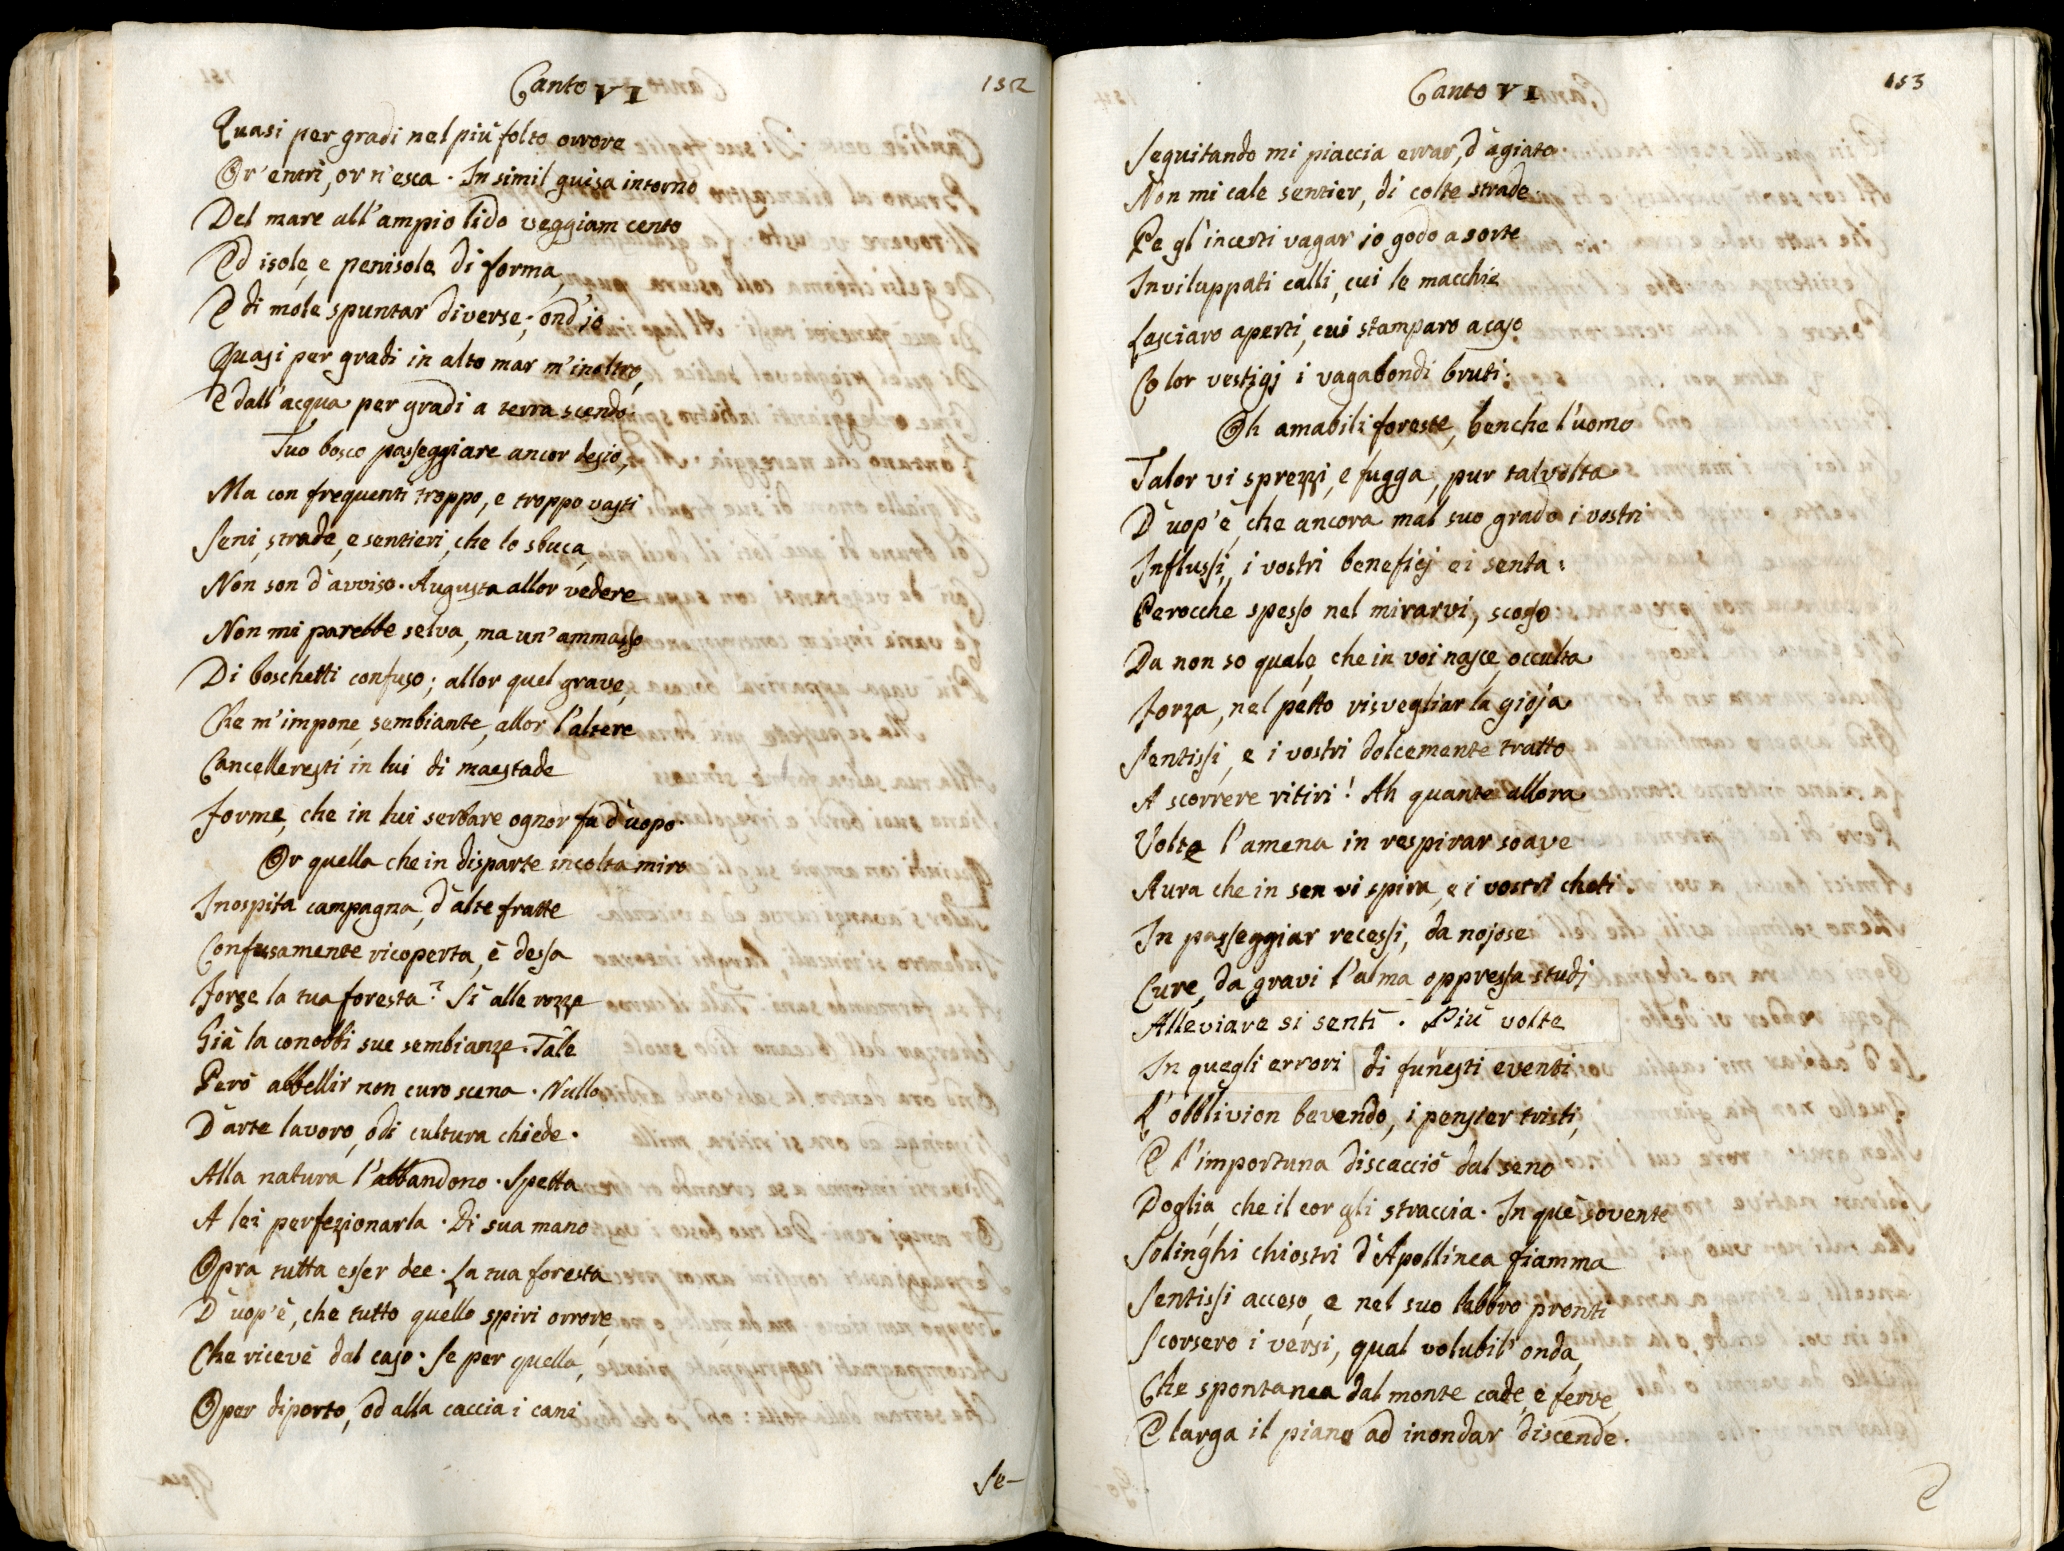 Canto VI
152
Quasi per gradi nel più folto orrore
Or' entri, or n'esca. In simil guisa intorno
Del mare all'ampio lido veggiam cento
Ed isole, e penisole di forma,
E di mole spuntar diverse; ond'io
Quasi per gradi in alto mar m'inoltro,
E dall'acqua per gradi a terra scendo.
Tuo bosco passeggiare ancor desio,
Ma con frequenti troppo, e troppo vasti
Seni, strade, e sentieri, che lo sbuca,
Non son d'avviso. Augusta allor vedere
Non mi parebbe selva, ma un'ammasso
Di boschetti confuso; allor quel grave,
Che m'impone, sembiante, allor l'altere
Cancelleresti in lui di maestade
Forme, che in lui serbare ognor fa d'uopo.
Or quella che in disparte incolta miro
Inospita campagna, d'alte fratte
Confusamente ricoperta, è dessa
Forse la tua foresta? Sì alle rozze
Già la conobbi sue sembianze. Tale
Però abbellir non curo scena. Nullo
D'arte lavoro, o di cultura chiede.
Alla natura l'abbandono. Spetta
A lei perfezionarla. Di sua mano
Opra tutta esser dee. La tua foresta
D'uop'è, che tutto quello spiri orrore,
Che riceve dal caso. Se per quella,
O per diporto, od alla caccia i cani
Se-
Canto VI
153
Seguitando mi piaccia errar, d'agiato
Non mi cale sentier, di colte strade.
Pe gl'incerti vagar io godo a sorte
Inviluppati calli, cui le macchie
Lasciaro aperti, cui stamparo a caso
Co lor vestigj i vagabondi bruti.
Oh amabili foreste, benche l'uomo
Talor vi sprezzi, e fugga, pur talvolta
D'uop'è, che ancora mal suo grado i vostri
Influssi, i vostri beneficj ei senta:
Perocche spesso nel mirarvi, scosso
Da non so quale, che in voi nasce, occulta
Forza, nel petto risvegliar la gioja
Sentissi, e i vostri dolcemente tratto
A scorrere ritiri! Ah quante allora
Volte l'amena in respirar soave
Aura che in sen vi spira, e i vostri cheti
In passeggiar recessi, da nojose
Cure, da gravi l'alma oppressa studj
Alleviare si sentì. Più volte
In quegli errori di funesti eventi
L'obblivion bevendo, i pensier tristi,
E l'importuna discacciò dal seno
Doglia, che il cor gli straccia. In que' sovente
Solinghi chiostri d'Apollinea fiamma
Sentissi acceso, e nel suo labbro pronti
Scorsero i versi, qual volubil'onda,
Che spontanea dal monte cade, e ferve,
E larga il piano ad inondar discende.
E